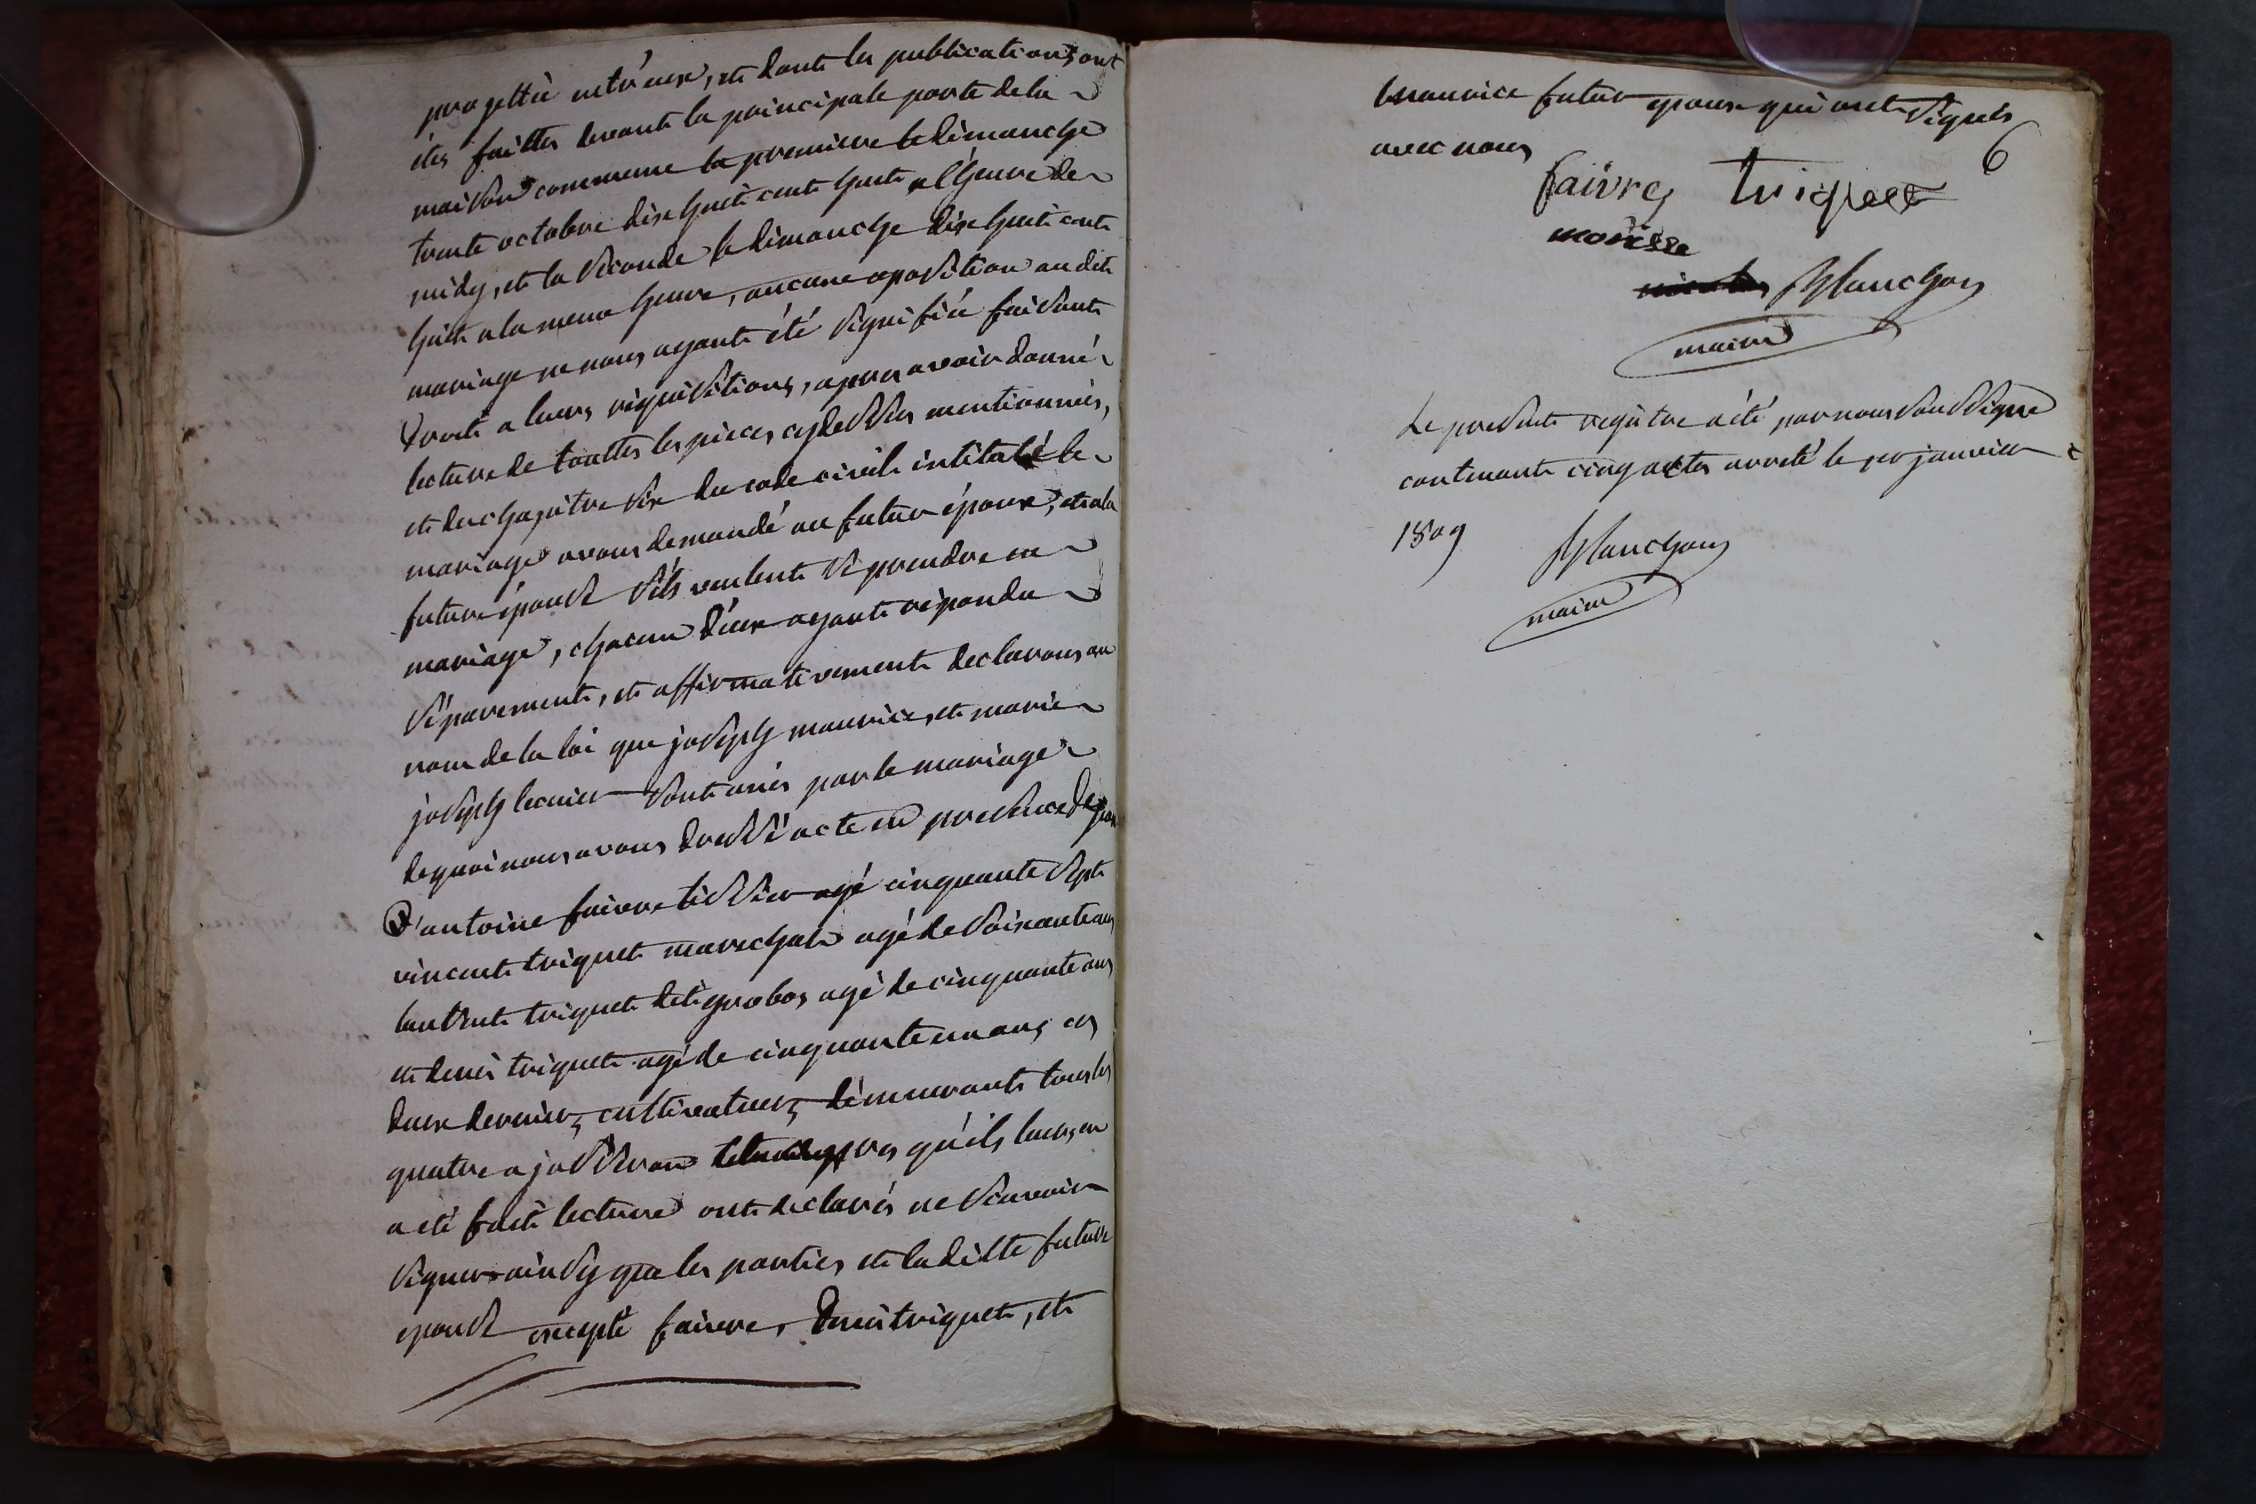 progettée entr'eux, et dont les publications ont
étés faittes devant la principale porte de la
maison commune la premiere le dimanche
trente octobre dix huit cent huit a l'heure de
midy, et la seconde le dimanche dix huit cent
huit a la meme heure, aucune oposition au dit
mariage ne nous ayant été signifiée faisant
droit a leurs réquisitions, apres avoir donné
lecture de touttes les pieces cy dessus mentionnées,
et du chapitre six du code civil intitulé le
mariage avons demandé au futur époux, et a la
future épouse s'ils veulent se prendre en
mariage, chacun d'eux ayant répondu
séparement, et affirmativement declarons au
nom de la loi que joseph maurice, et marie
joseph lecuier sont unis par le mariage
de quoi nous avons dressé acte en presence de
d'antoine faivre tissier agé cinquante sept
vincent triquet marechal agé de soixante ans
laurent triquet dit grobos agé de cinquante ans
et denis triquet agé de cinquante un ans ces
deux derniers cultivateurs démeurants tous les
quatre a josseron apres qu'ils leurs en
a eté fait lecture ont declarés ne scavoir
signer ainsy que les parties et la ditte future
epouse excepté faivre, denis triquet, et
maurice futur epoux qui ont signés
avec nous
6
faivre triquet
morisse
Blanchon
maire
Le present registre a été par nous soussigné
contenant cinq actes arreté le per janvier
1809
Blanchon
maire